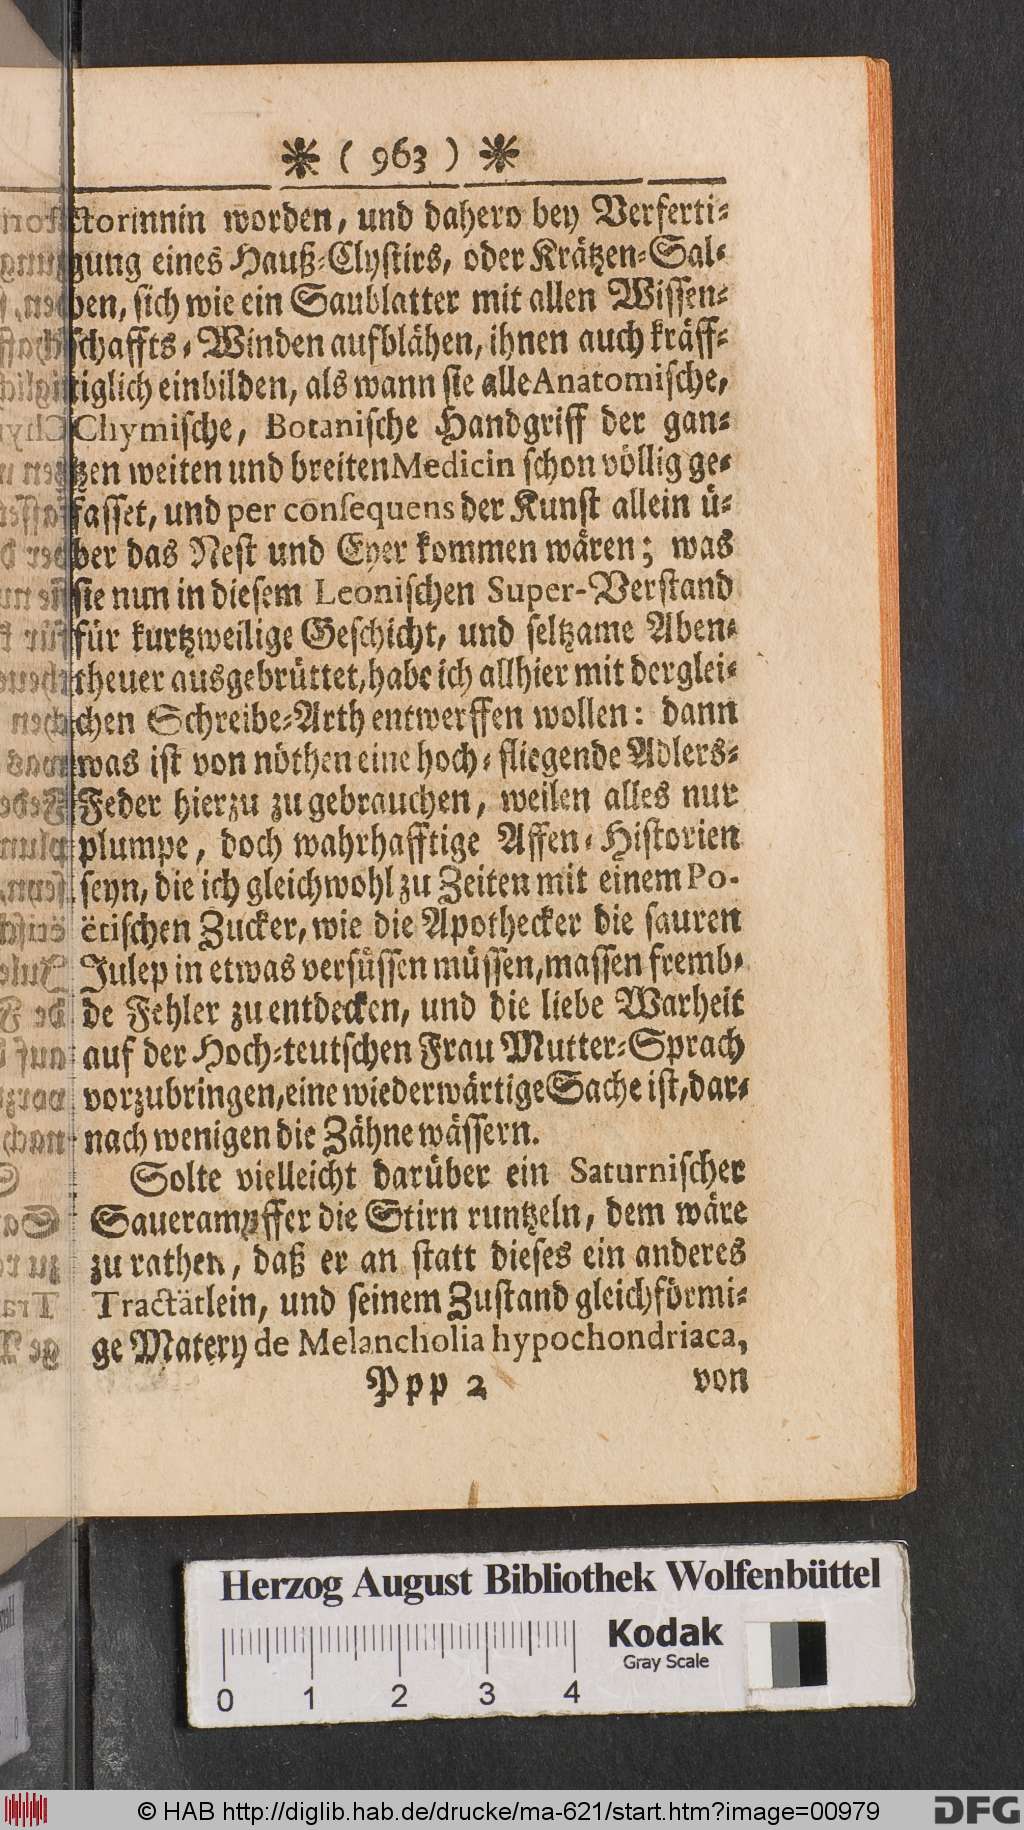 * ( 963 ) *
ctorinnin worden, und dahero bey Verferti-
gung eines Hauß-Clystirs, oder Krätzen-Sal-
ben, sich wie ein Saublatter mit allen Wissen-
schaffts-Winden aufblähen, ihnen auch kräff-
tiglich einbilden, als wann sie alle Anatomische,
Chymische, Botanische Handgriff der gan-
tzen weiten und breiten Medicin schon völlig ge-
fasset, und per consequens der Kunst allein ü-
ber das Nest und Eyer kommen wären; was
sie nun in diesem Leonischen Super-Verstand
für kurtzweilige Geschicht, und seltzame Aben-
theuer ausgebrüttet, habe ich allhier mit derglei-
chen Schreibe-Arth entwerffen wollen: dann
was ist von nöthen eine hoch-fliegende Adlers-
Feder hierzu zu gebrauchen, weilen alles nur
plumpe, doch wahrhafftige Affen-Historien
seyn, die ich gleichwohl zu Zeiten mit einem Po-
ëtischen Zucker, wie die Apothecker die sauren
Julep in etwas versüssen müssen, massen fremb-
de Fehler zu entdecken, und die liebe Warheit
auf der Hoch-teutschen Frau Mutter-Sprach
vorzubringen, eine wiederwärtige Sache ist, dar-
nach wenigen die Zähne wässern.
Solte vielleicht darüber ein Saturnischer
Sauerampffer die Stirn runtzeln, dem wäre
zu rathen, daß er an statt dieses ein anderes
Tractätlein, und seinem Zustand gleichförmi-
ge Matery de Melancholia hypochondriaca,
Ppp 2 von
Herzog August Bibliothek Wolfenbüttel
Kodak
Gray Scale
0 1 2 3 4
© HAB http://diglib.hab.de/drucke/ma-621/start.htm?image=00979
DFG